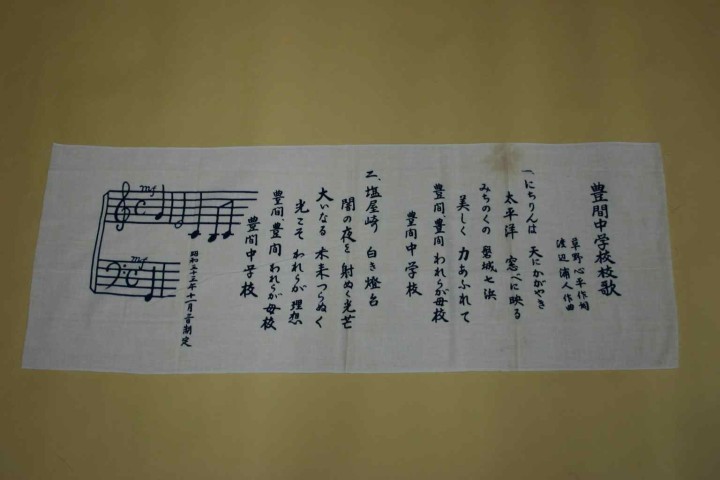 豊間中学校校歌
草野心平作詞
渡辺浦人作曲
一、にちりんは 天にかがやき
太平洋 窓べに映る
みちのくの 磐城七浜
美しく 力あふれて
豊間、豊間 われらが母校
豊間中学校
二、塩屋崎 白き燈台
闇の夜を 射ぬく光芒
大いなる 未来つらぬく
光こそ われらが理想
豊間、豊間 われらが母校
豊間中学校
mf
mf
昭和三十三年十一月三日制定